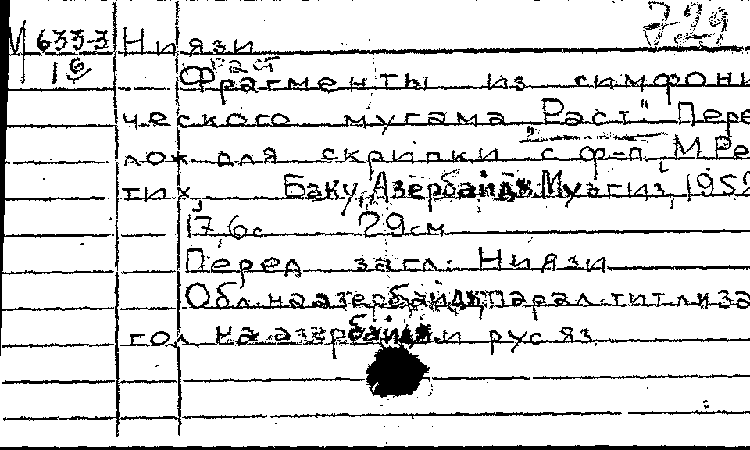 729
М 633-3 Ниязи
16 Раст
Фрагменты из симфони
ческого мугама "Раст". Пере
лож. для скрипки с ф-п. М. Ре
тих, Баку, Азербайдж. Музгиз, 195
17,6с 29см
Перед загл.: Ниязи
Обл. на азербайдж, парал. тит. л и за
гол на азербайдж. и рус яз